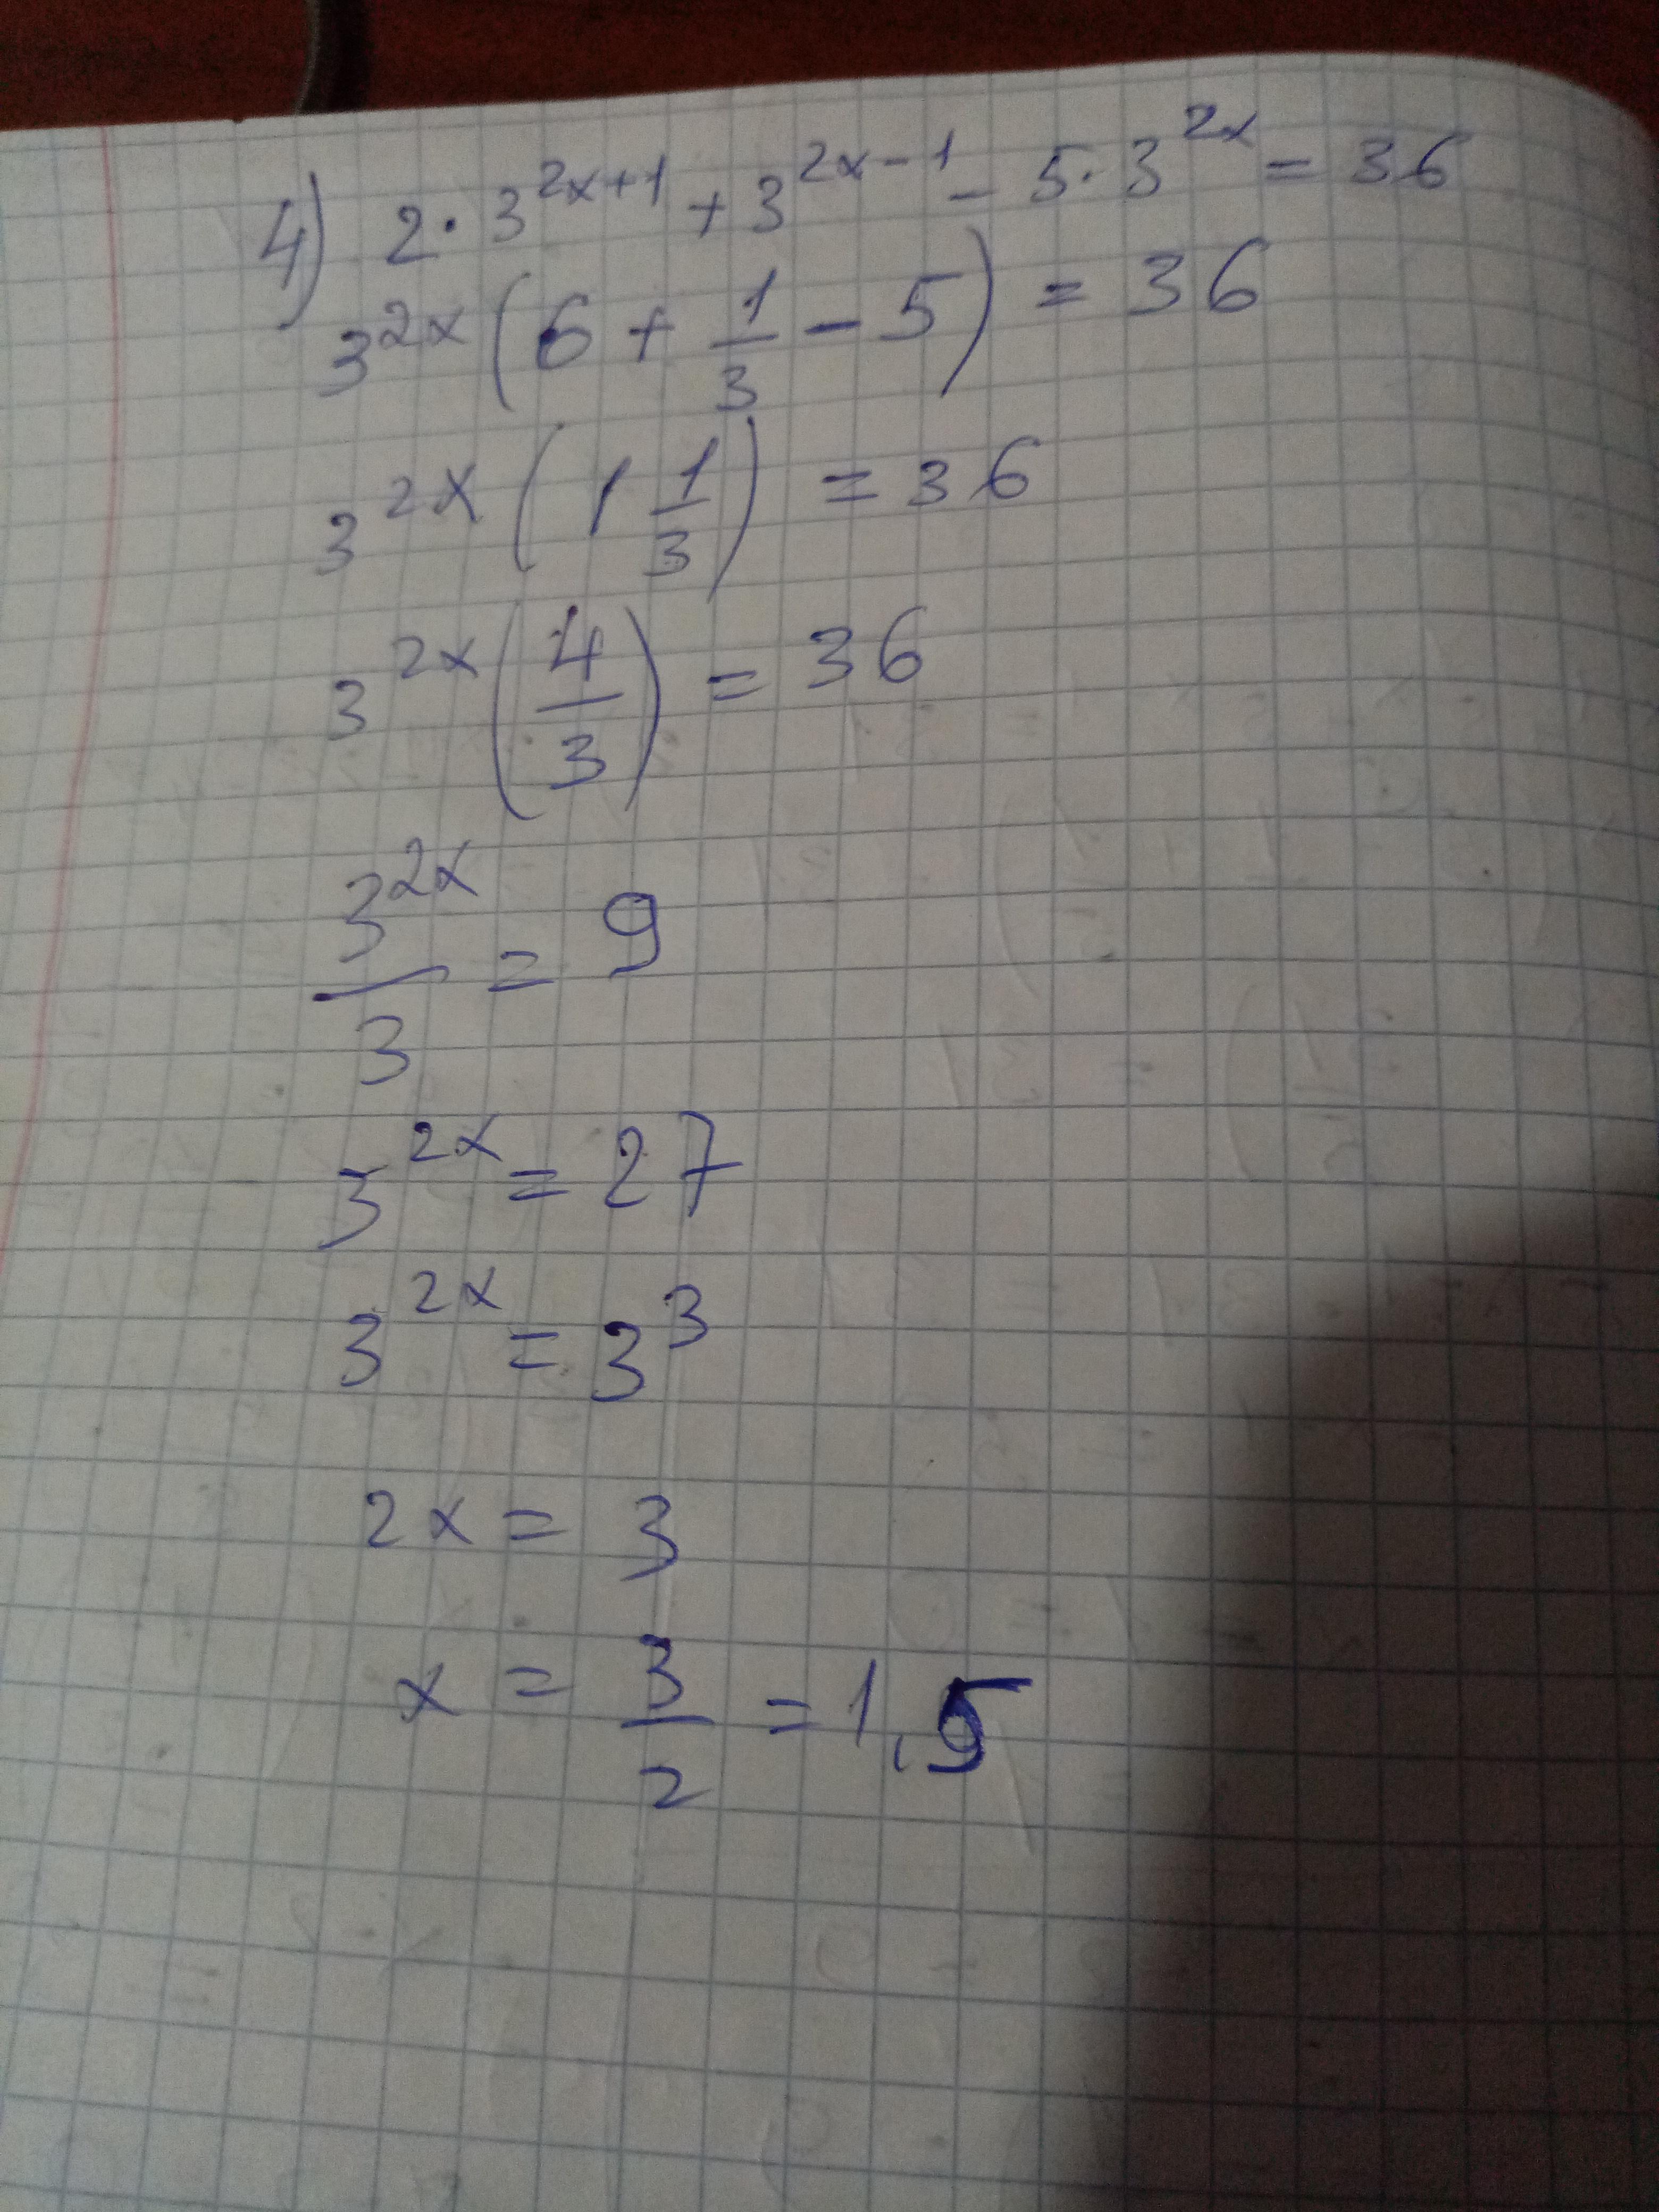 4) 2 · 3^{2x+1} + 3^{2x-1} - 5 · 3^{2x} = 36
3^{2x} (6 + \frac{1}{3} - 5) = 36
3^{2x} (1 \frac{1}{3}) = 36
3^{2x} (\frac{4}{3}) = 36
\frac{3^{2x}}{3} = 9
3^{2x} = 27
3^{2x} = 3^3
2x = 3
x = \frac{3}{2} = 1,5